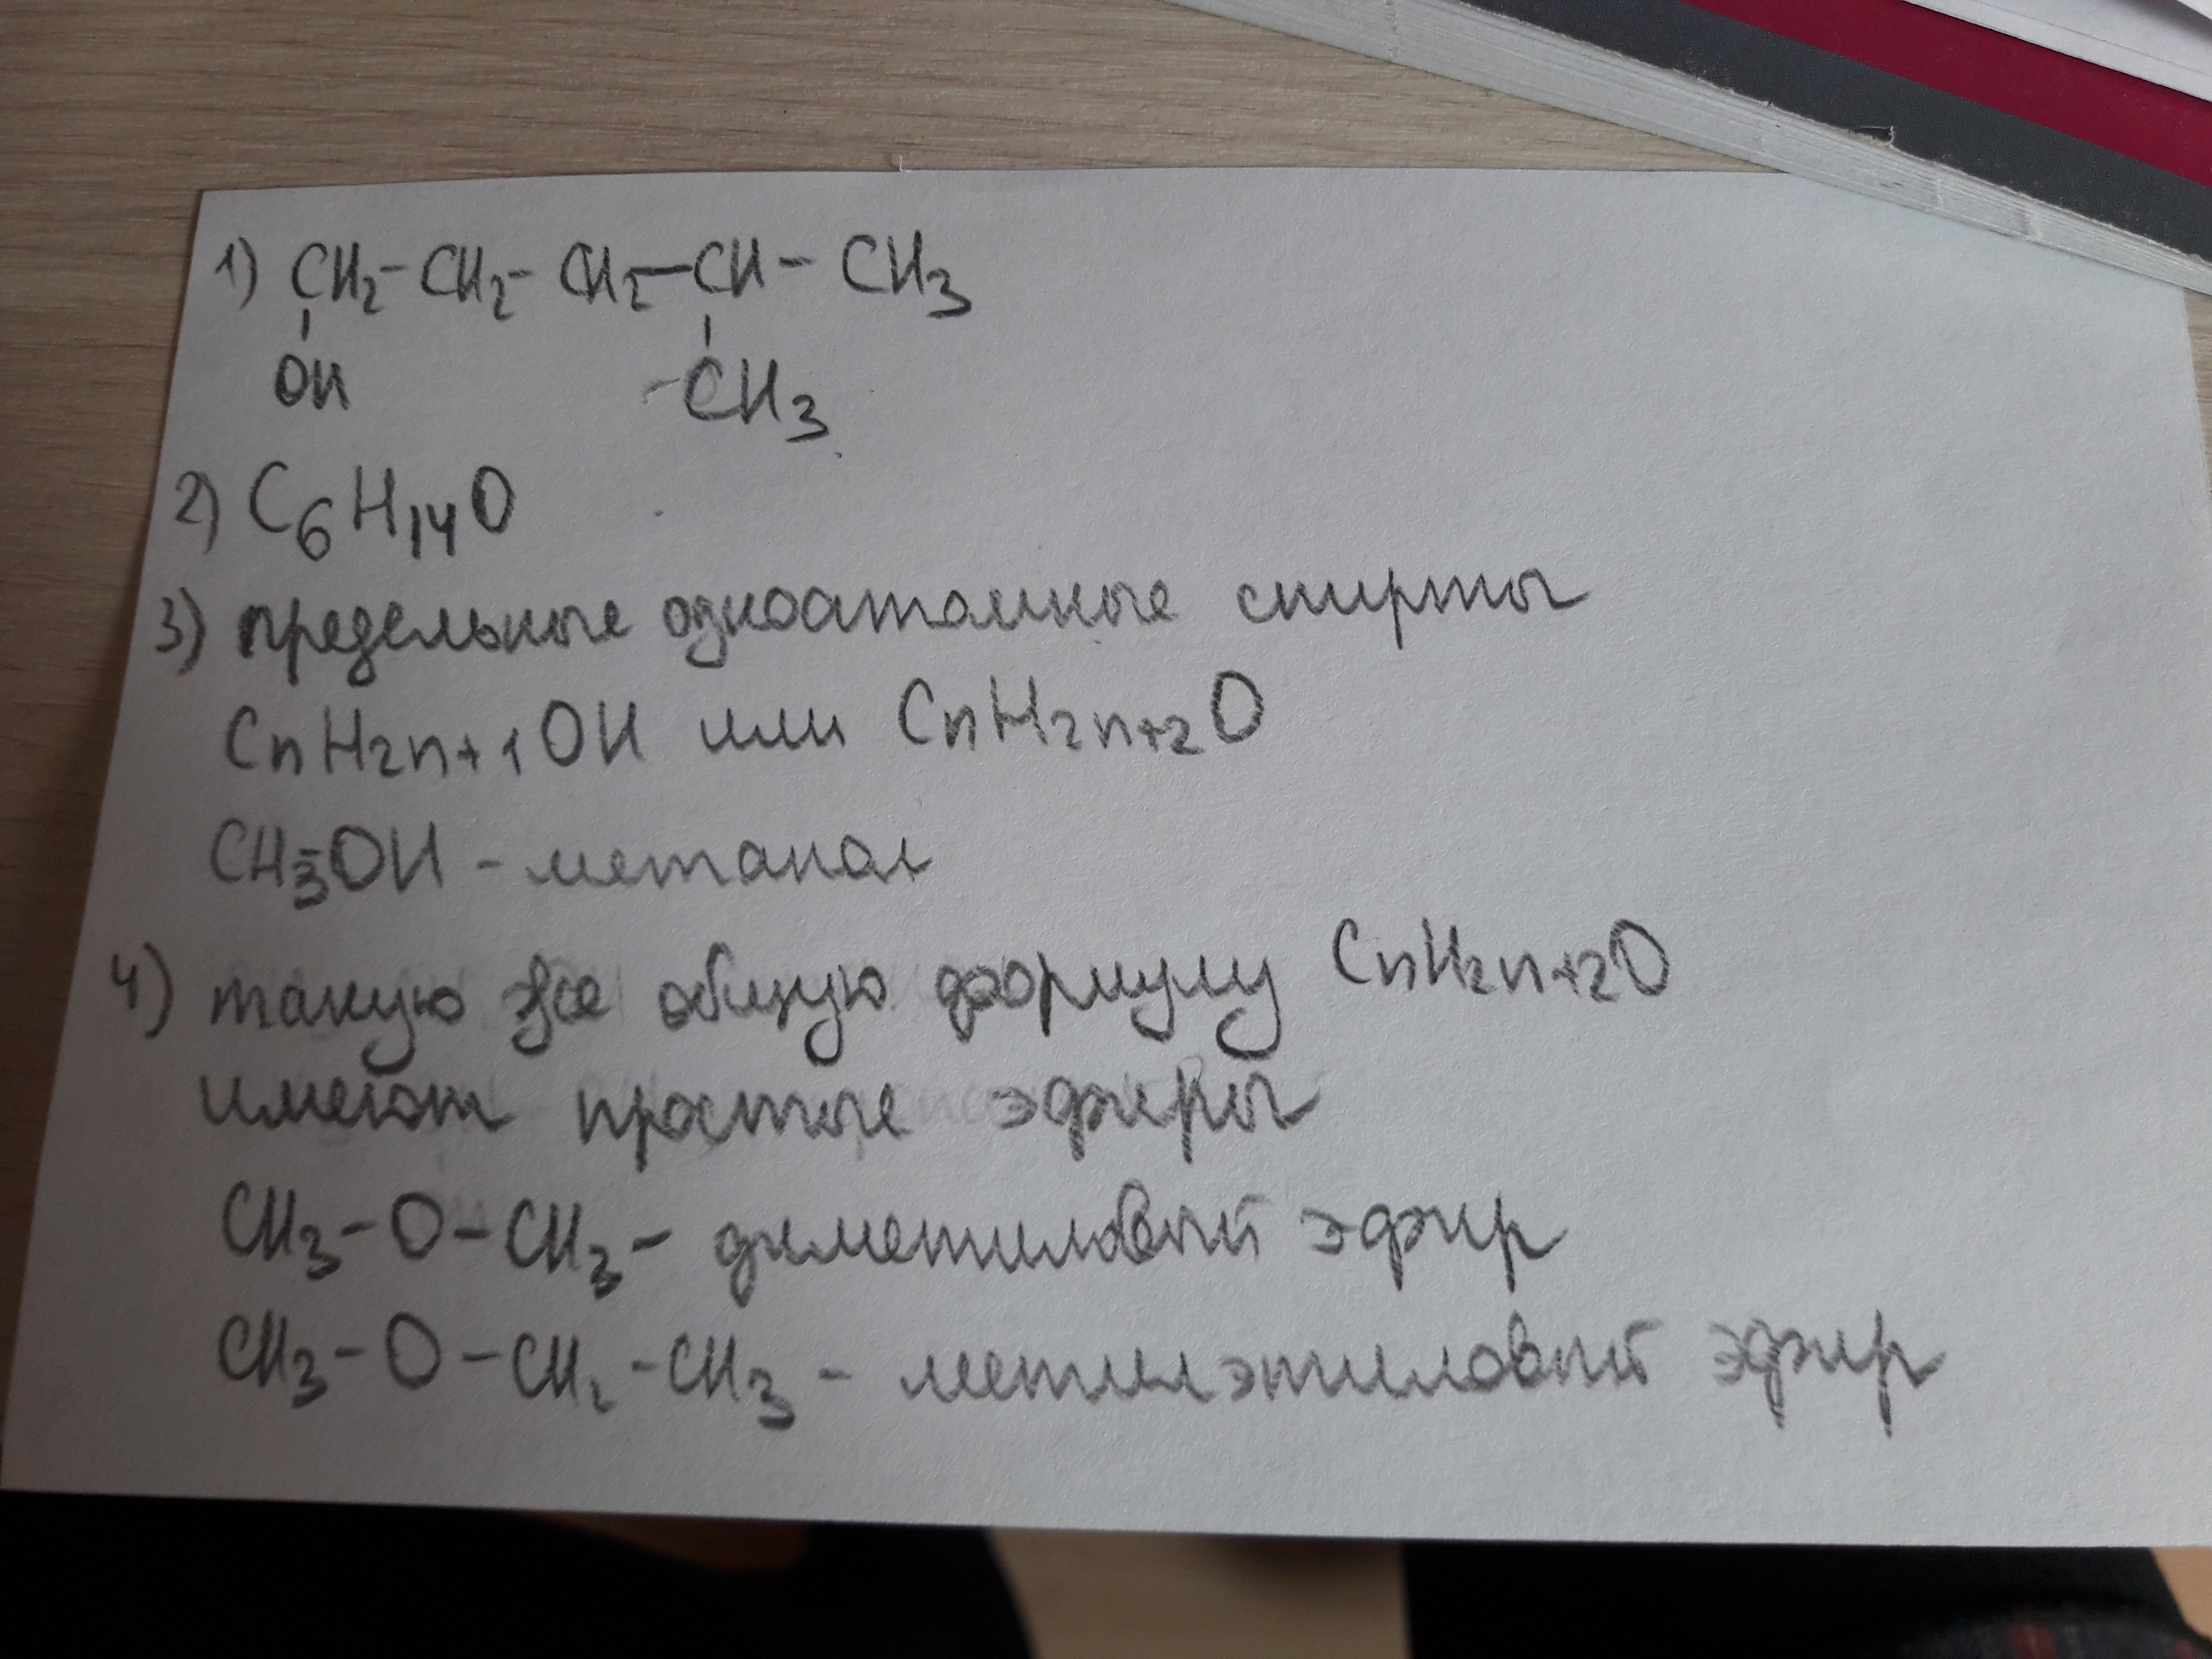 1) CH₂-CH₂-CH₂-CH-CH₃
OH CH₃
2) C₆H₁₄O
3) предельные одноатомные спирты
CnH2n+1OH или CnH2n+2O
CH₃-OH - метанол
4) такую же общую формулу CnH2n+2O
имеют простые эфиры
CH₃-O-CH₃ - диметиловый эфир
CH₃-O-CH₂-CH₃ - метилэтиловый эфир